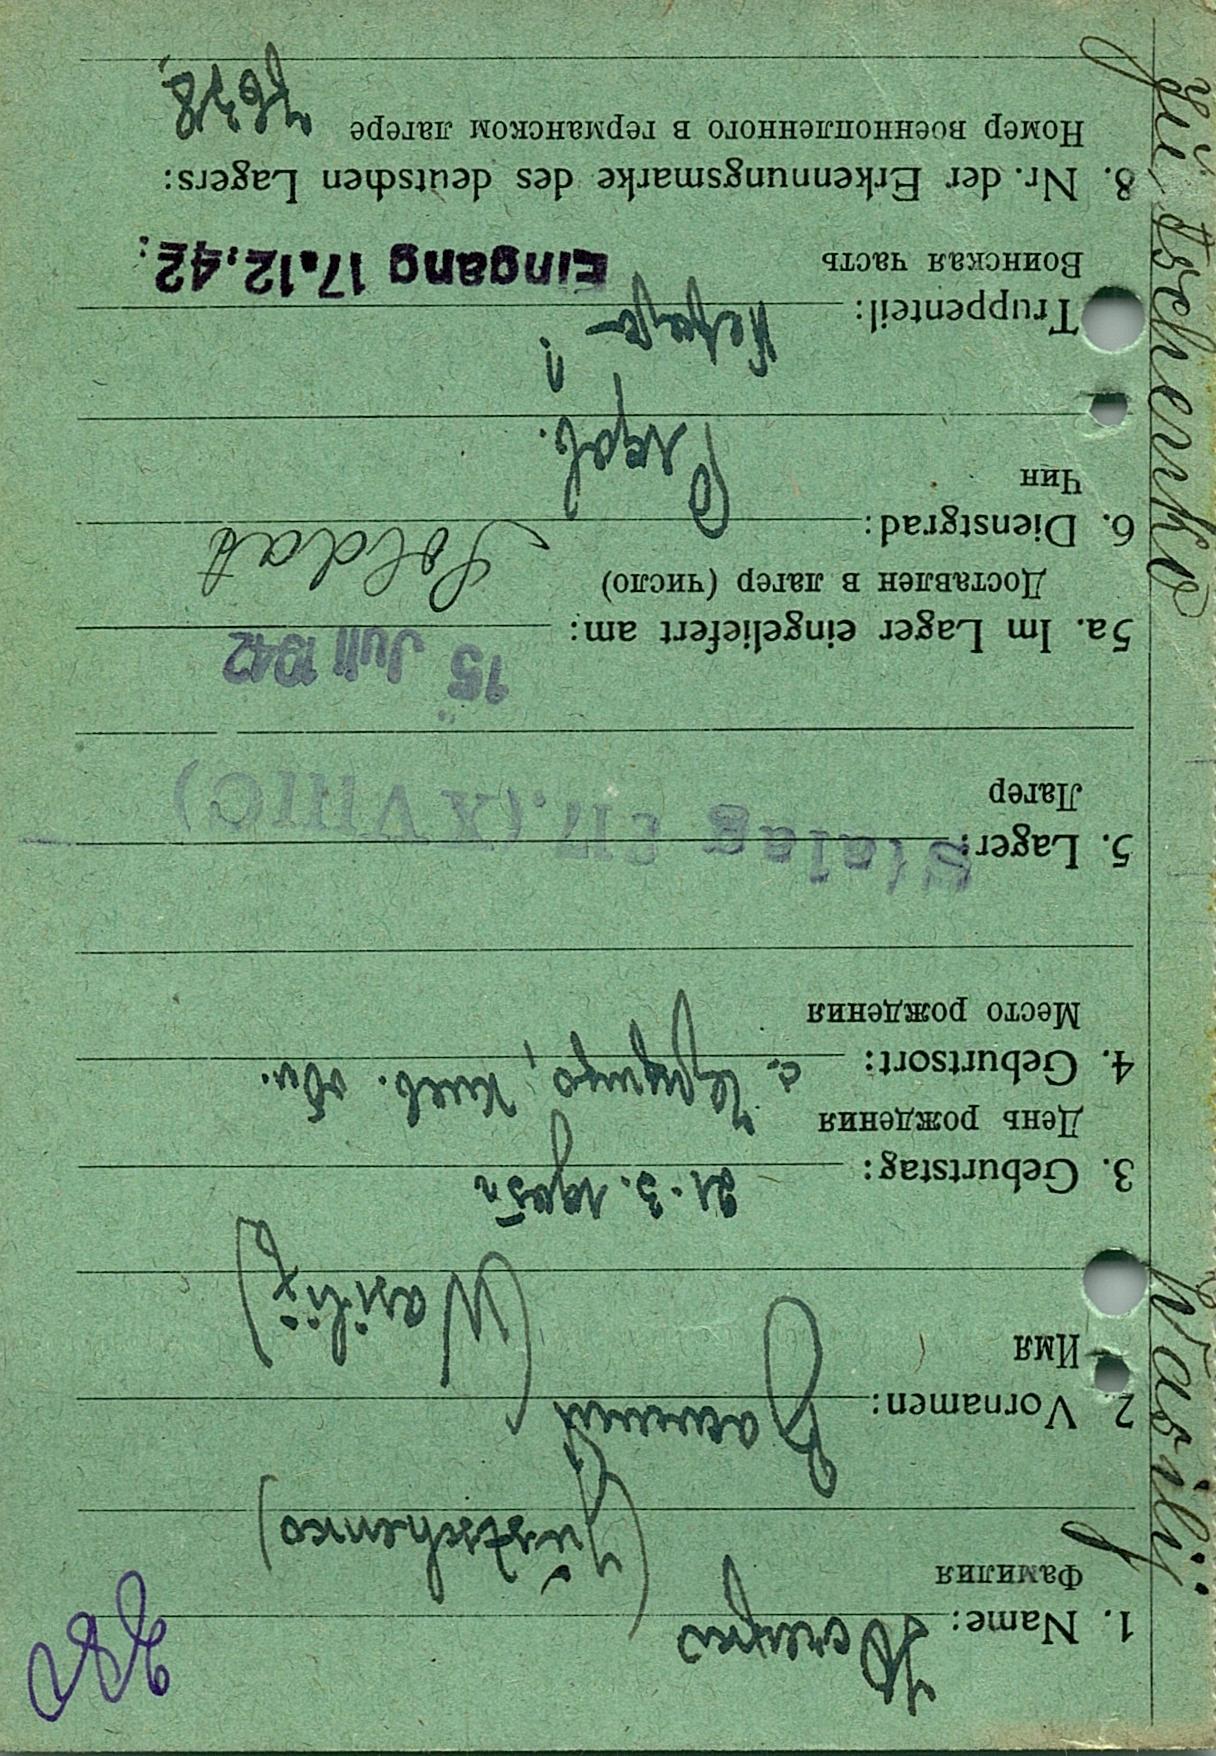 1. Name: Ющенко
Фамилия
(Jüstschenko)
2 Vornamen: Василий
Имя
(Wasilij)
3. Geburtstag: 21. 3. 1905
День рождения
4. Geburtsort: с. Киев. обл.
Место рождения
5. Lager: Stalag 317 (XVIIIC)
Лагер
5a. Im Lager eingeliefert am: 15. Juli 1942
Доставлен в лагер (число)
Soldat
6. Dienstgrad: Рядов.
Чин
Truppenteil:
Воинская часть
Eingang 17.12.42.
8. Nr. der Erkennungsmarke des deutschen Lagers:
Номер военнопленного в германском лагере
Wasilij